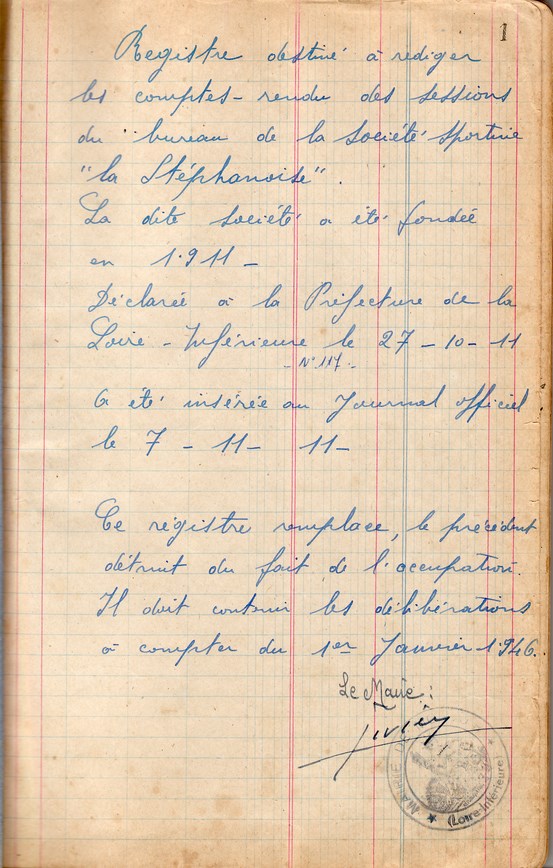 1
Registre destiné à rédiger
les comptes-rendu des sessions
du bureau de la Société Sportive
"la Stéphanoise".
La dite société a été fondée
en 1.911 –
Déclarée à la Préfecture de la
Loire-Inférieure le 27 – 10 – 11
– N° 117 –
A été insérée au Journal officiel
le 7 – 11 – 11 –
Ce régistre remplace, le précédent
détruit du fait de l'occupation.
Il doit contenir les délibérations
à compter du 1er Janvier 1.946.
Le Maire :
MAIRIE
(Loire-Inférieure)